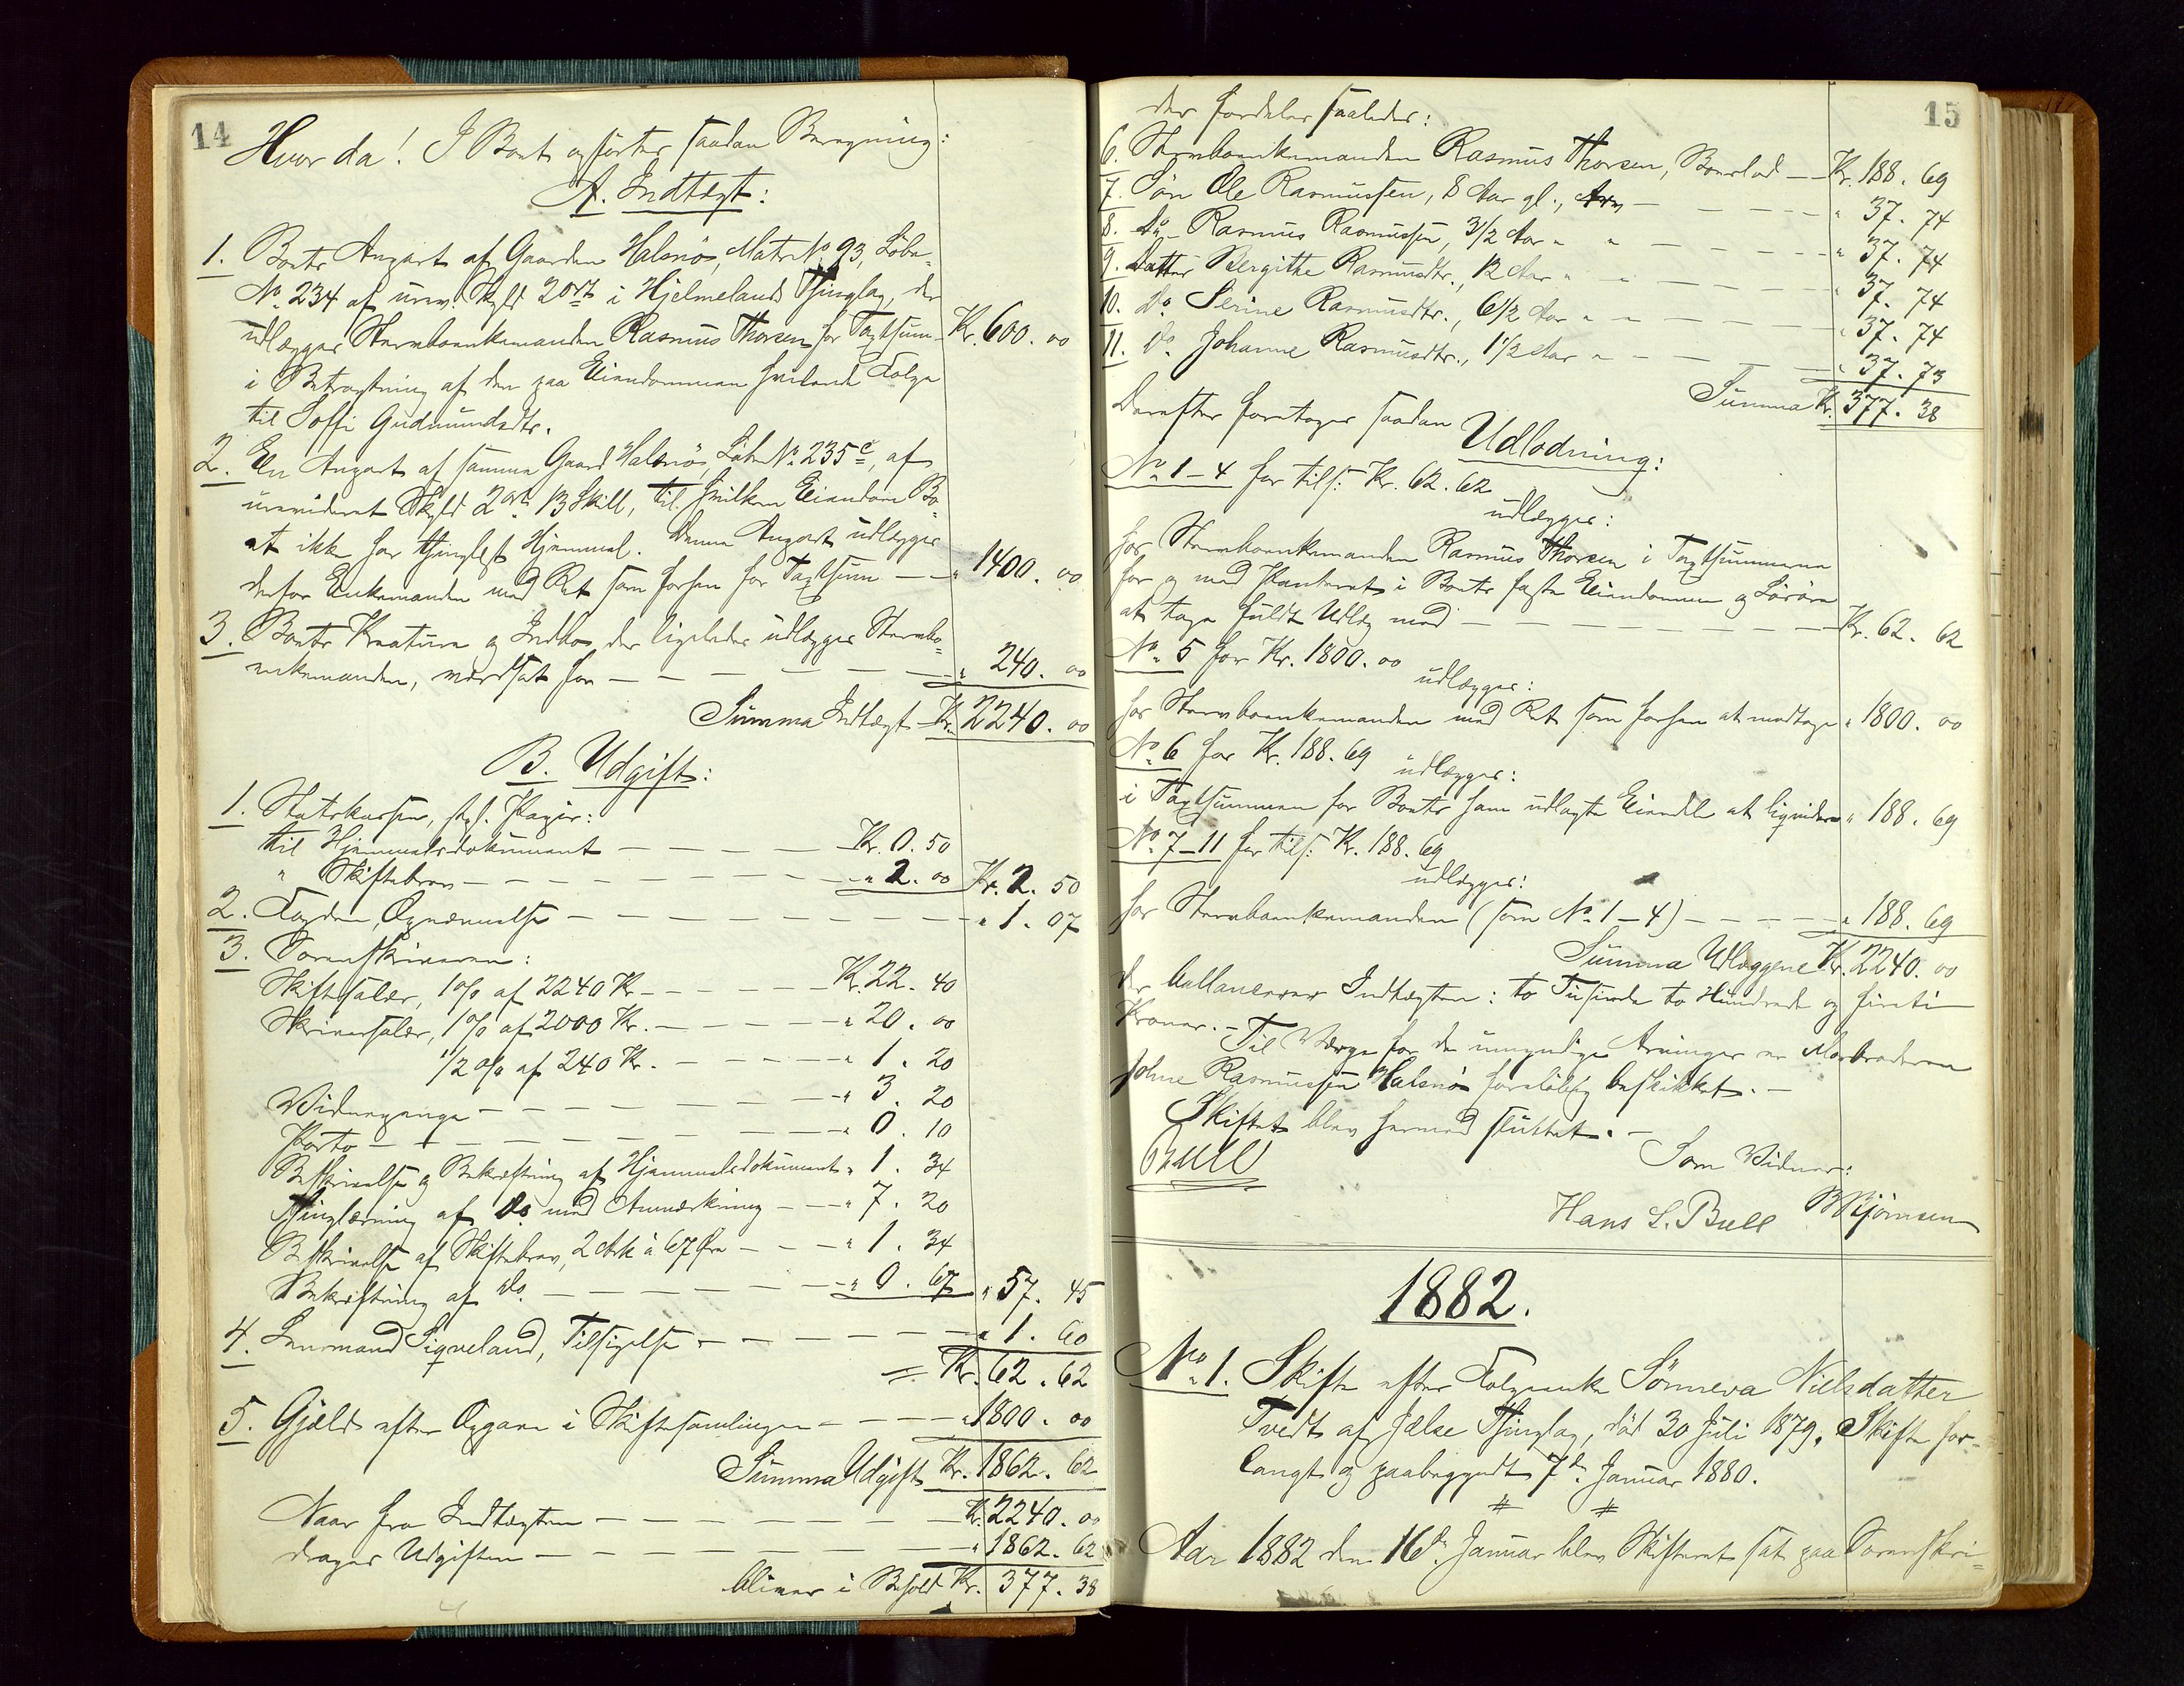 14
Hvorda! I Boet opførtes saadan Beregning:
A. Indtægt:
1. Boets Anpart af Gaarden Halsnøs, Matr No 93, Løbe-
No 234 af urev. Skyld 2 ort i Hjelmelands Thinglag, der
udlægges Sterboenkemanden Rasmus Thorsen for Taxtsum- Kr. 600. 00
i Betragtning af den paa Eiendommen hvilende Folge
til Soffi Gudmundsdtr.
2. En Anpart af samme Gaard Halsnøs, Løbe No 235 c, af
urevideret Skyld 2 ort 13 Skill, til hvilken Eiendom Bo-
et ikke har thinglæst Hjemmel. Denne Anpart udlægges
derfor Enkemanden med Ret som forhen for Taxtsum — " 1400. 00
3. Boets Kreature og Indbo, der ligeledes udlægges Sterbo-
enkemanden, værdsat for — — — — " 240. 00
Summa Indtægt Kr. 2240. 00
B. Udgift:
1. Statskassen, stpl. Papir:
til Hjemmelsdokument — — — — Kr. 0. 50
" Skiftebrev — — — — " 2. 00 Kr. 2. 50
2. Fogden, Opnævnelse — — — — " 1. 07
3. Sorenskriveren:
Skiftesalær, 1 0/0 af 2240 Kr — — — Kr. 22. 40
Skriversalær, 1 0/0 af 2000 Kr. — — — " 20. 00
" 1/2 0/0 af 240 Kr. — — — " 1. 20
Vidnepenge — — — — " 3. 20
Porto — — — — " 0. 10
Beskrivelse og Bekræftning af Hjemmelsdokument " 1. 34
Thinglæsning af Do med Anmærkning — — " 7. 20
Beskrivelse af Skiftebrev, 2 Ark à 67 Øre — — " 1. 34
Bekræftning af Do. — — — — " 0. 67 " 57. 45
4. Lensmand Siqveland, Tilsigelse — — — — " 1. 60
= Kr. 62. 62
5. Gjæld efter Opgave i Skiftesamlingen — — — " 1800. 00
Summa Udgift Kr. 1862. 62
Naar fra Indtægten — — — — Kr. 2240. 00
drages Udgiften — — — — " 1862. 62
bliver i Behold Kr. 377. 38
15
der fordeles saaledes:
6. Sterboenkemanden Rasmus Thorsen, Boeslod — — Kr. 188. 69
7. Søn Ole Rasmussen, 8 Aar gl., Arv — — — " 37. 74
8. Do - Rasmus Rasmussen, 3 1/2 Aar " " — — — " 37. 74
9. Datter Bergithe Rasmusdtr., 12 Aar " " — — — " 37. 74
10. Do. Serine Rasmusdtr., 6 1/2 Aar " " — — — " 37. 74
11. Do. Johanne Rasmusdtr., 1 1/2 Aar " — — — " 37. 73
Summa Kr. 377. 38
Derefter foretoges saadan
Udlodning:
No 1–4 for tils: Kr. 62. 62
udlægges:
hos Sterboenkemanden Rasmus Thorsen i Taxtsummerne
for og med Panteret i Boets faste Eiendomme og Løsøre
at tage fuldt Udlæg med — — — — Kr. 62. 62
No 5 for Kr. 1800. 00
udlægges:
hos Sterboenkemanden med Ret som forhen at modtage " 1800. 00
No 6 for Kr. 188. 69
udlægges:
i Taxtsummen for Boets ham udlagte Eiendele at liqvidere " 188. 69
No 7–11 for tils: Kr. 188. 69
udlægges:
hos Sterboenkemanden (som No 1–4) — — — — " 188. 69
Summa Udlæggene Kr. 2240. 00
der ballancerer Indtægten: to Tusinde to Hundrede og firti
Kroner. – Til Værge for de umyndige Arvinger er Morbroderen
Johne Rasmussen Halsnøs foreløbig beskikket. –
Skiftet blev hermed sluttet. –
Bull
Som Vidner:
Hans L. Bull BBjörnsen
1882.
No 1. Skifte efter Folgeenke Sønneva Nielsdatter
Tvedt af Jælse Thinglag, død 30 Juli 1879. Skifte for-
langt og paabegyndt 7de Januar 1880.
Aar 1882 den 16de Januar blev Skifteret sat paa Sorenskri-